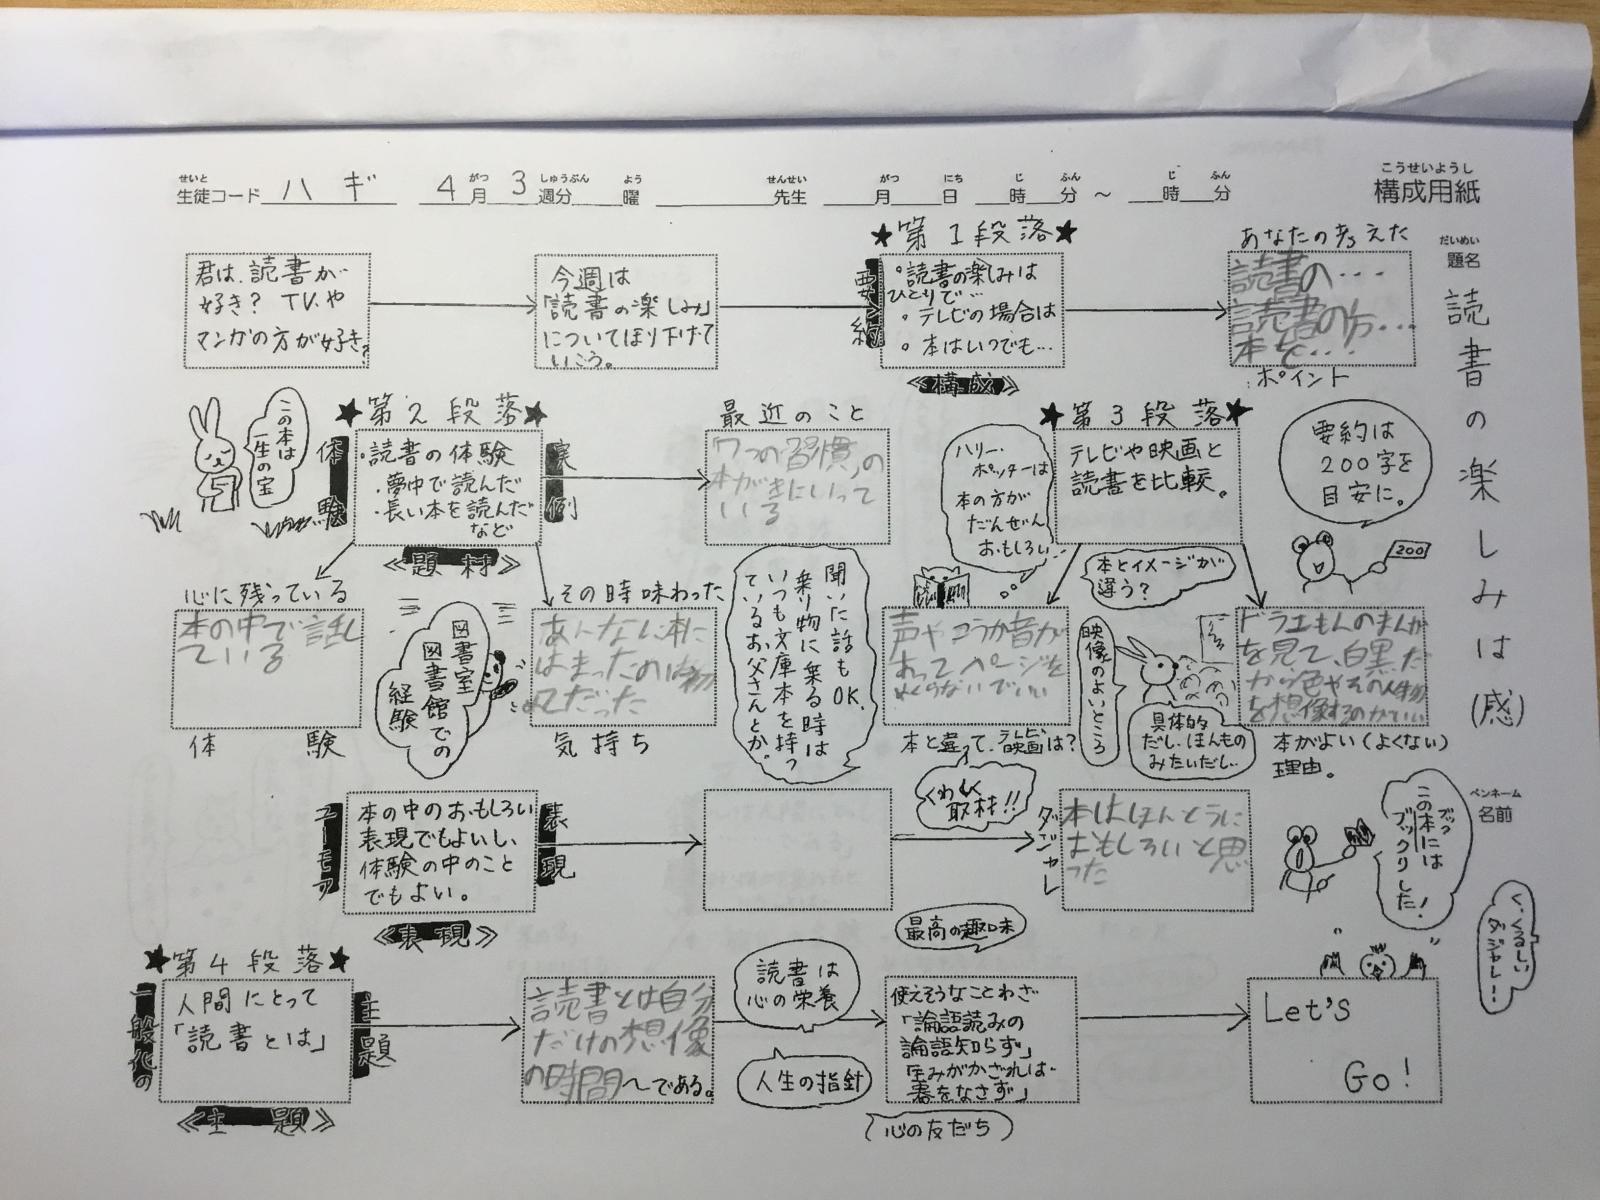 せいと がつ しゅうぶん よう せんせい がつ にち じ ふん じ ふん こうせいようし
生徒コード ハギ 4月3週分 曜 先生 月 日 時 分 ～ 時 分 構成用紙
だいめい
題名
読書の楽しみは(感)
君は、読書が
好き? TV.や
マンガの方が好き?
今週は
「読書の楽しみ」
についてほり下げて
いこう。
★第1段落★
要約
。読書の楽しみは
ひとりで…
。テレビの場合は
。本はいつでも…
《構成》
あなたの考えた
読書の…
読書の方…
本を…
ポイント
この本は
一生の宝
★第2段落★
体験
・読書の体験
・夢中で読んだ
・長い本を読んだ
など
実例
《題材》
最近のこと
「7つの習慣」の
本がきにいって
いる
ハリー・
ポッターは
本の方が
だんぜん
おもしろい
★第3段落★
テレビや映画と
読書を比較。
要約は
200字を
目安に。
200
心に残っている
本の中で話し
ている
体験
図書室
図書館での
経験
その時味わった
あんない本に
はまったのは初
めてだった
気持ち
聞いた話もOK.
乗り物に乗る時は
いつも文庫本を持っ
ているお父さんとか。
声やこうか音が
あってページを
めくらないでいい
本と違って、テレビ映画は?
本とイメージが
違う?
映像のよいところ
具体的
だし、ほんもの
みたいだし、
ドラエもんのまんが
を見て、白黒だ
から色やその人物
を想像するのがいい
本がよい(よくない)
理由。
ペンネーム
名前
ユーモア
本の中のおもしろい
表現でもよいし、
体験の中のこと
でもよい。
表現
《表現》
くわしく
取材!!
ダジャレ
本はほんとうに
おもしろいと思
った
ブック
この本には
ブックリした!
く、くるしい
ダジャレ…
★第4段落★
一般化の
人間にとって
「読書とは」
主題
《主題》
読書とは自分
だけの想像
の時間～である。
読書は
心の栄養
人生の指針
最高の趣味
使えそうなことわざ
「論語読みの
論語知らず」
書をなさず」
心の友だち
Let's
Go!